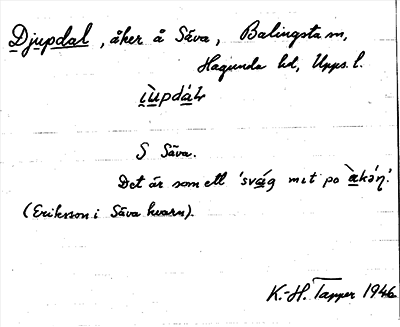 Djupdal, åker å Säva, Balingsta sn,
Hagunda hd, Upps. l.
i̯ùpdáꞎ
S Säva.
Det är som ett 'svág mit po àkən'.
(Eriksson i Säva kvarn).
K.-H. Tapper 1946